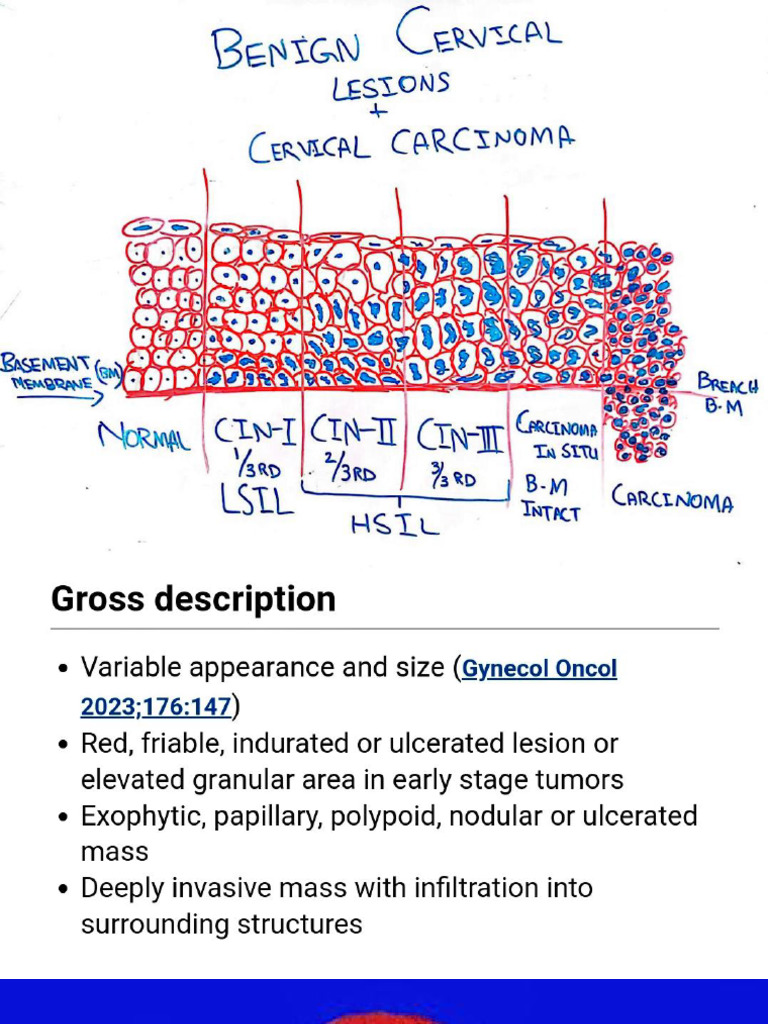 BENIGN CERVICAL
LESIONS
+
CERVICAL CARCINOMA
BASEMENT
MEMBRANE (BM)
BREACH
B.M
NORMAL
CIN-I
1/3RD
LSIL
CIN-II
2/3RD
CIN-III
3/3 RD
HSIL
CARCINOMA
IN SITU
B-M
INTACT
CARCINOMA
Gross description
• Variable appearance and size (Gynecol Oncol
2023;176:147)
• Red, friable, indurated or ulcerated lesion or
elevated granular area in early stage tumors
• Exophytic, papillary, polypoid, nodular or ulcerated
mass
• Deeply invasive mass with infiltration into
surrounding structures